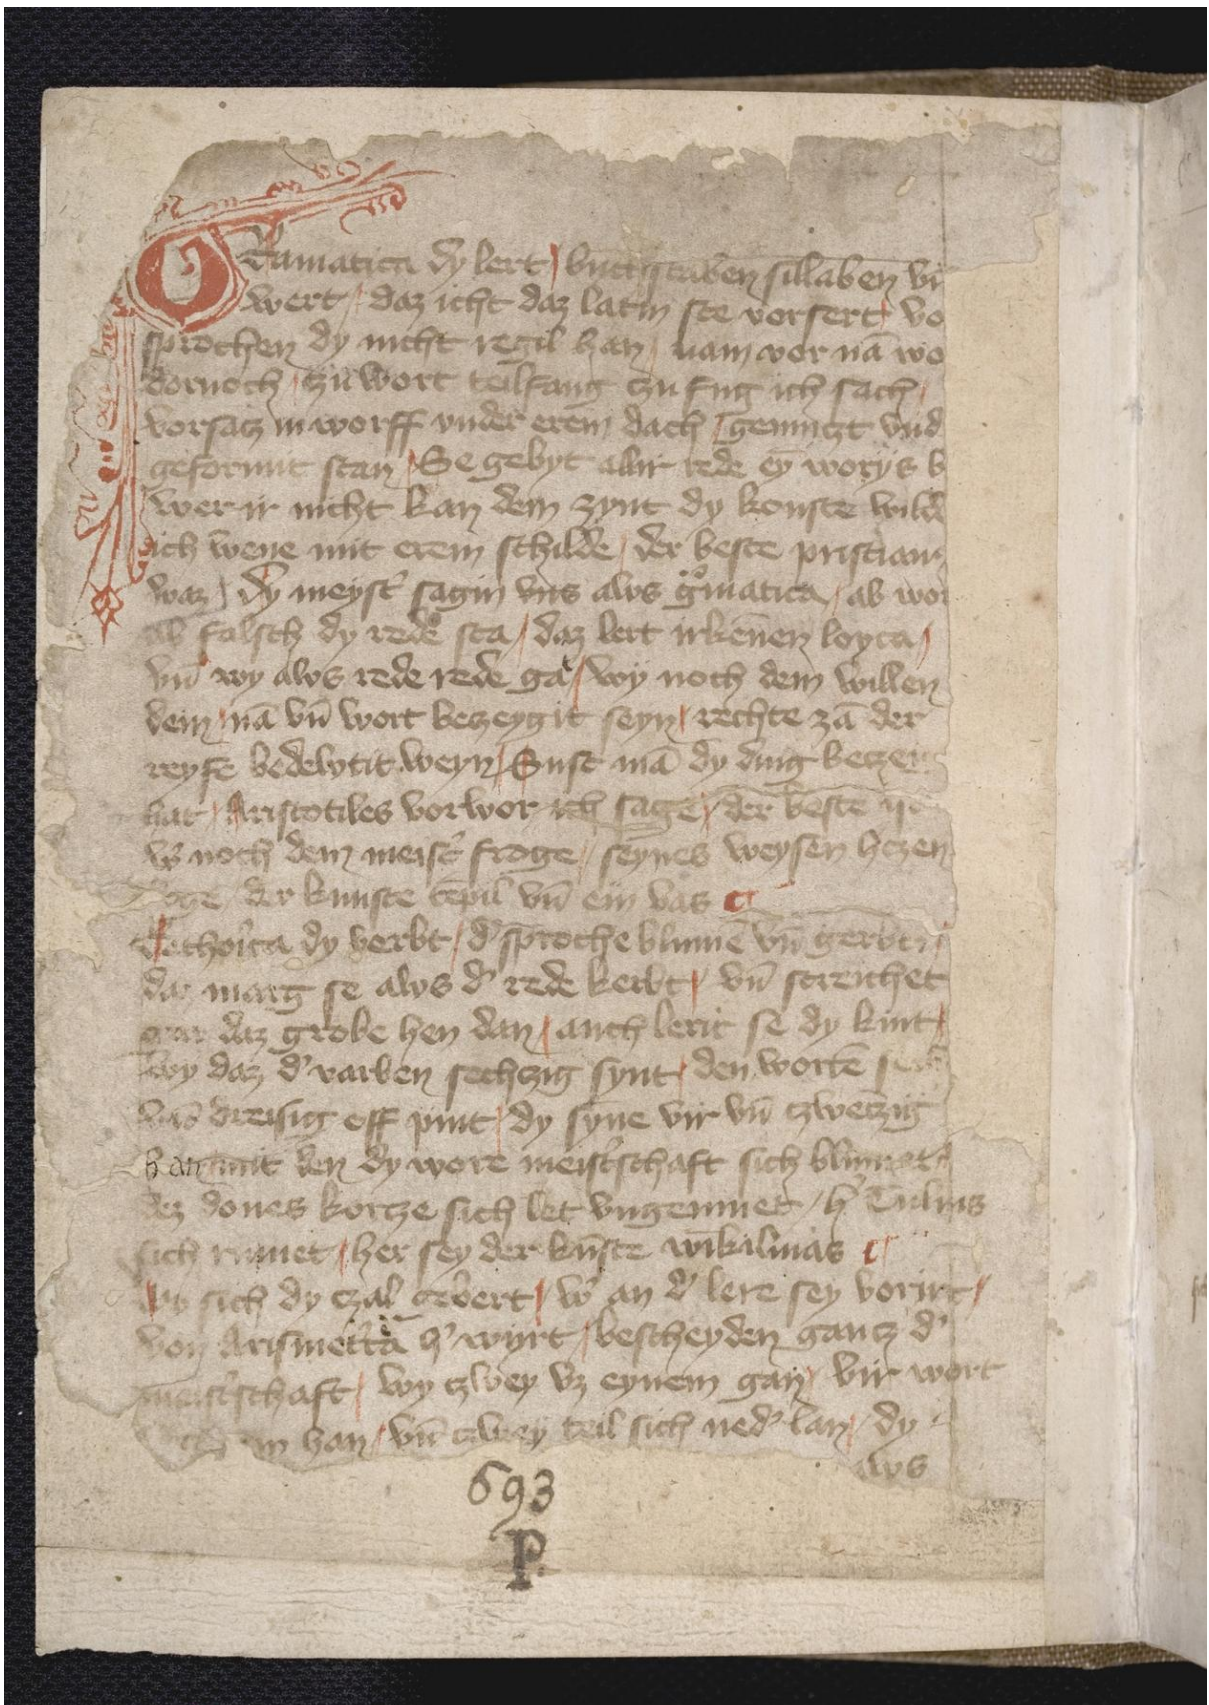 Gramatica dy lert / buchstaben sillaben vn
wert / daz icht daz latin ste vorsert / vo
sprochen dy nicht regil han / nam vor nā wo
dornoch / czu wort teilfang czu fug ich sach /
vorsacz in worff vnder erem dach / gemugt vnd
geformt stan / Se gebyt allir rede ey worys
wer ir nicht kan dem zynt dy konste wilde
ich wene mit erem schilde / der beste pristian
waz / dy meyst' sagin vns alws g̊matica / ab wor
ab falsch dy rede sta / daz lert irkennen loyca /
vn̄ wy alws rede rede ga / wy noch dem willen
dem nā vn̄ wort beczeygit seyn / rechte zā der
reyfe bedewtit weyn / Sust mā dy ding beczey
hat / Aristotiles vorwor ich sage / der beste
w' noch dem meist' froge / seynes weysen herczen
der kunste tēpil vn̄ ein vas
Rethorica dy verbt / d' sproche blumē vn̄ gerbt /
daz marg se alws d' rede kerbt / vn̄ streichet
gar daz grobe hen dan / auch lerit se dy kint /
wy daz d' varben sechczig synt / den wortē
dreisig off pint / dy syne vir vn̄ czwenczig
han mit den dy wore meist'schaft sich blumet
dez dones korcze sich let vngenuet / h' Tulius
sich rumet / her sey der kūste winkilmas
Wy sich dy czal gebert / w' an d' lere sey vorirt /
von Arismetica h' wyrt / bescheyden gancz d'
meist'schaft / wy czwey vz eynem gan / vir wort
in han / vn̄ czwey teil sich ned' lan / dy
aws
693
P.